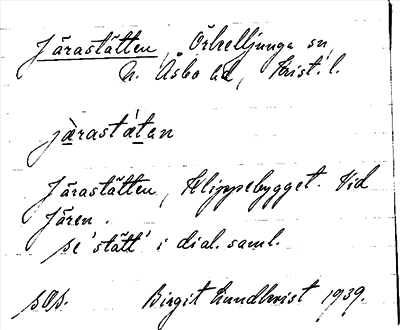 Järastätten, Örkelljunga sn,
N. Åsbo hd, Krist. l.
jæ̀rastǽtan
Järastätten, Klippebygget. Vid
Jären.
se 'stätt' i dial. saml.
sOp. Birgit Lundkvist 1939.